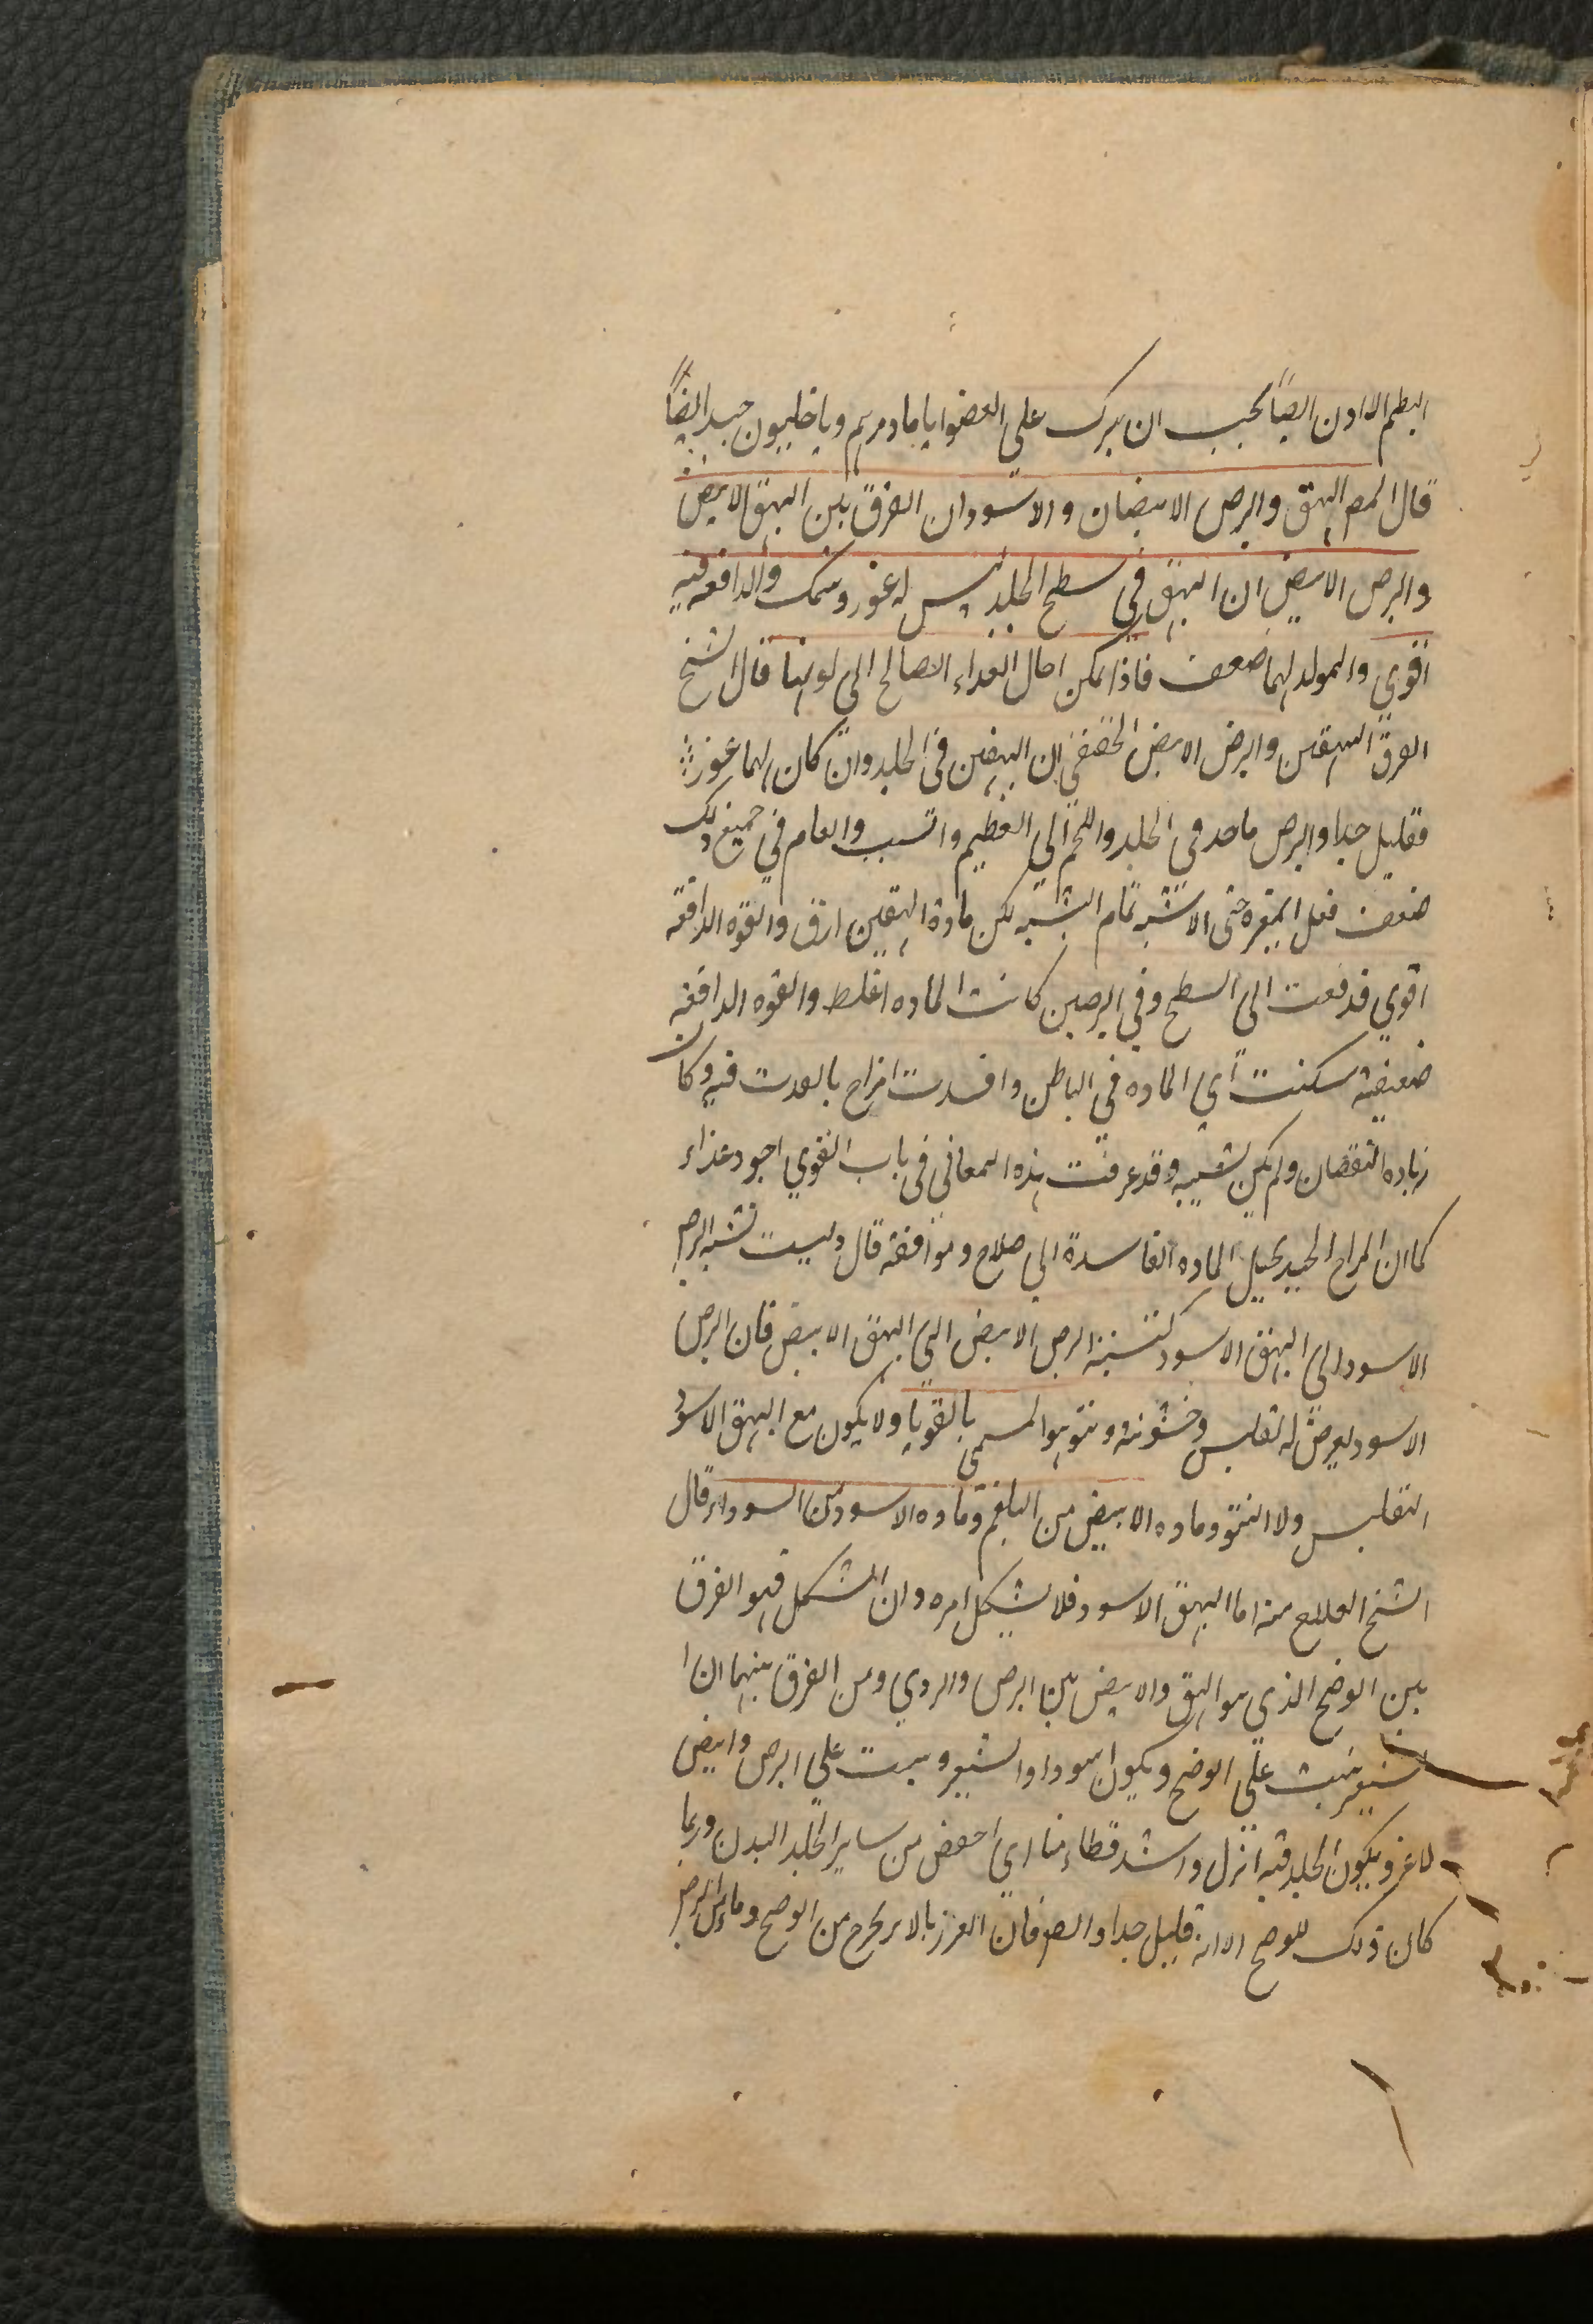 البطم اللادن ايضاً يجب ان يترك على العضو اياما ومرهم وباخليون جيد ايضاً
قال المص البهق والبرص الابيضان والاسودان الفرق بين البهق الابيض
والبرص الابيض ان البهق في سطح الجلد ليس له غور وسمك والدافعه فيه
اقوى والمولد لهما ضعف فاذا تمكن احال الغداء الصالح الى لونها قال الشيخ
الفرق البهقين والبرص الابيض الحقيقي ان البهقين في الجلد وان كان لهما غور
فقليل جدا والبرص في الجلد واللحم الى العظيم والسبب والعام في جميع ذلك
ضعف فعل المغيره حتى لا تشبه تمام التشبه لكن مادة البهقين ارق والقوه الدافعه
اقوى فدفعت الى السطح وفي البرصين كانت الماده اغلظ والقوه الدافعه
ضعيفه سكنت اي الماده في الباطن وافسدت مزاج فيه وكان
زياده النقصان ولم يكن تشبيه وقد عرفت هذه المعاني في باب القوى اجود غذاء
كما ان المزاج الجيد يحيل الماده الفاسدة الى صلاح وموافقه قال وليست نسبه البرص
الاسود الى البهق الاسود كنسبة البرص الابيض الى البهق الابيض فان البرص
الاسود يعرض له تفليس وخشونه وهو المسمى بالقوبا ولا يكون مع البهق الاسود
التفليس ولا النتو وماده الابيض من البلغم وماده الاسود من السوداء قال
الشيخ العلاج منه اما البهق الاسود فلا يشكل امره وان المشكل فهو الفرق
بين الوضح الذي هو البهق والابيض بين البرص والردي ومن الفرق بينهما ان
الشعر ينبت على الوضح ويكون اسودا والشعر ينبت على البرص وابيض
لا غير ويكون الجلد فيه انزل واشد اي اخفض من ساير الجلد البدن وربما
كان ذلك للوضح الا انه قليل جدا فان الغرز بالابر يخرج من الوضح